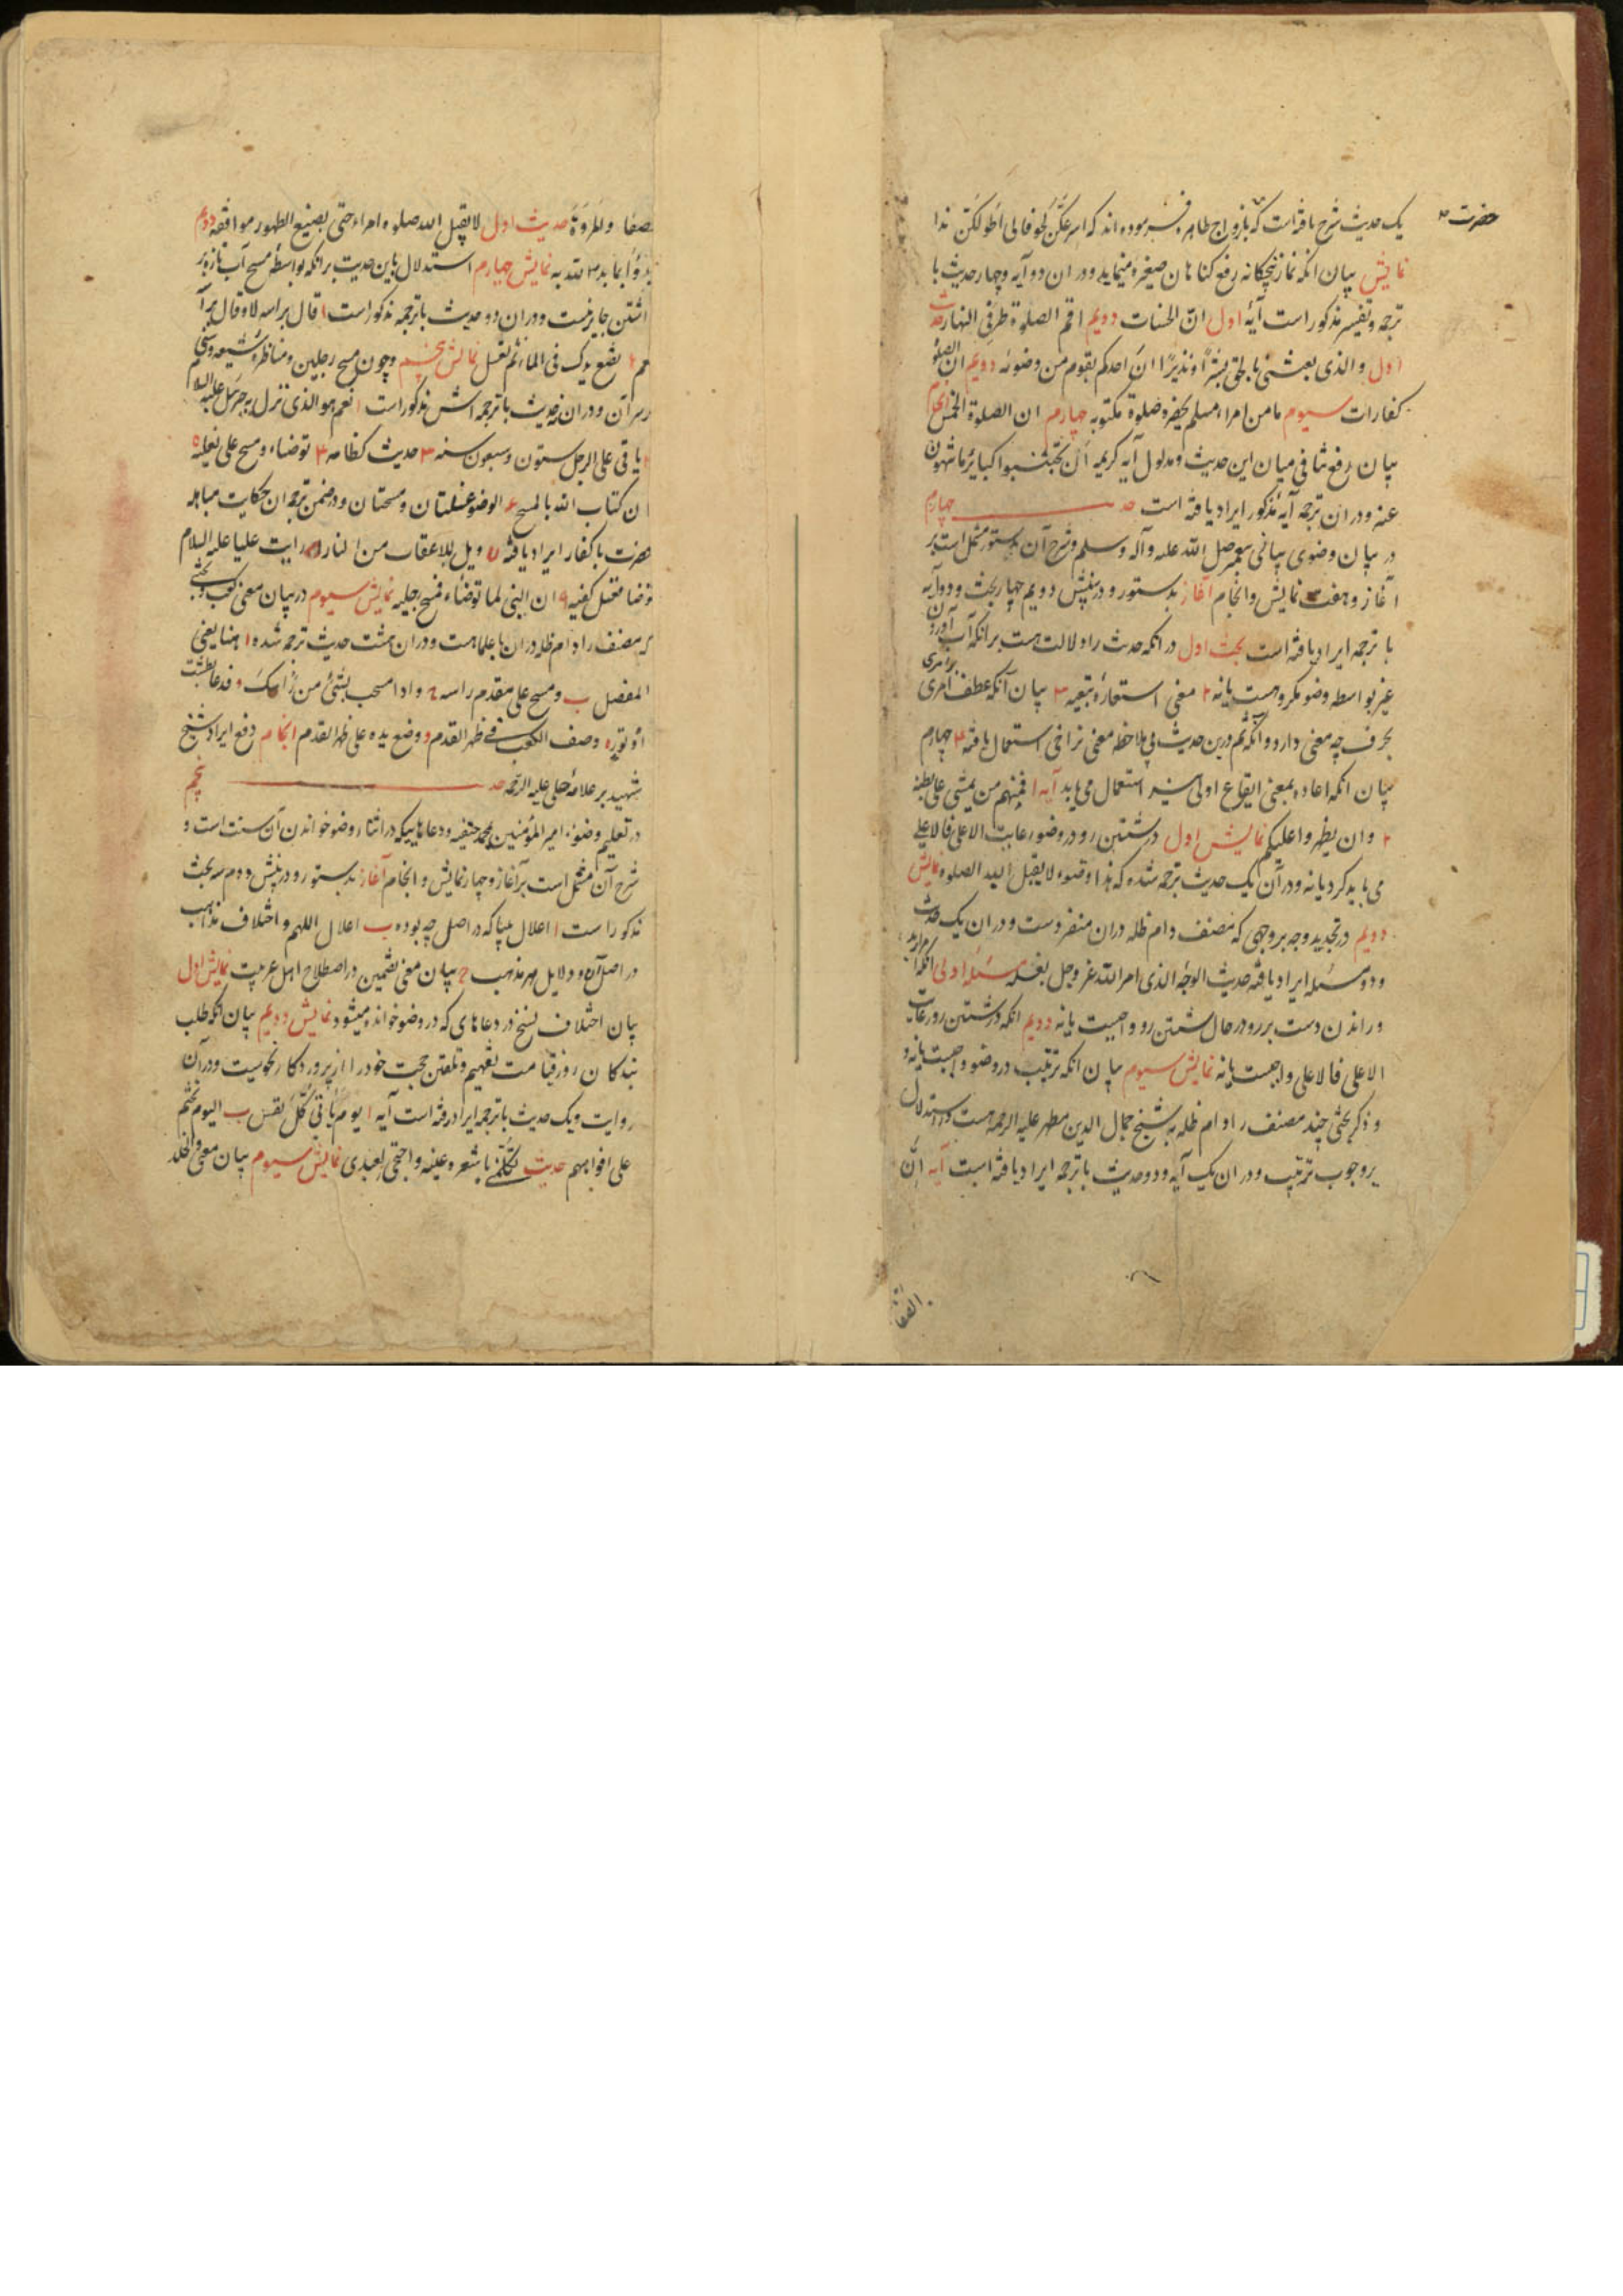 یک حدیث شرح یافته است که بازواج طاهره فرموده اند که اسرعکن لحوقا بی اطولکن یدا
حضرت
نمایش بیان انکه نماز پنجگانه رفع کناهان صغیره مینماید و در ان دو آیه و چهار حدیث با
ترجمه و تفسیر مذکور است آیهٔ اول ان الحسنات دویم اقم الصلوة طرفی النهار حدیث
اول و الذی بعثنی بالحق بشیرا و نذیرا ان احدکم یقوم من وضوئه دویم ان الصلوة
کفارات سیوم ما من امراء مسلم یحضره صلوة مکتوبه چهارم ان الصلوة الخمس
بیان رفع تنافی میان این حدیث و مدلول آیه کریمه ان تجتنبوا کبائر ما تنهون
عنه و در ان ترجمه آیه مذکور ایراد یافته است حد چهارم
در بیان وضوی بیانی پیغمبر صلی الله علیه وآله وسلم و شرح آن بدستور مشتمل است بر
آغاز و هفت نمایش و انجام آغاز بدستور و در بینش دویم چهار بحث و دو آیه
با ترجمه ایراد یافته است بحث اول در انکه حدیث را دلالت هست بر انکه آب آوردن
غیر بواسطه وضو مکروهست یا نه ۲ معنی استعارهٔ تبعیه ۳ بیان آنکه عطف امری بر امری
بحرف چه معنی دارد و آنکه ثم درین حدیث بی ملاحظه معنی تراخی استعمال یافته ۴ چهارم
بیان انکه اعاده بمعنی ایقاع اولی نیز استعمال می یابد آیه ۱ فمنهم من یمشی علی بطنه
۲ و ان یظهروا علیکم نمایش اول در شستن رو در وضو رعایت الاعلی فالاعلی
می باید کرد یا نه و در آن یک حدیث ترجمه شده که هذا وضوء لا یقبل الله الصلوة نمایش
دویم در تجدید وجه بر وجهی که مصنف دام ظله دران منفردست و در ان یک حدیث
و دو مسئله ایراد یافته حدیث الوجه الذی امر الله عز وجل بغسله مسئله اولی انکه
و راندن دست بر رو در حال شستن رو واجبست یا نه دویم انکه در شستن رو رعایت
الاعلی فالاعلی واجبست یا نه نمایش سیوم بیان انکه ترتیب در وضو واجبست یا نه و
و ذکر بحثی چند مصنف را دام ظله بر شیخ جمال الدین مطهر علیه الرحمه هست در استدلال
بر وجوب ترتیب و در ان یک آیه و دو حدیث با ترجمه ایراد یافته است آیه ان
الصفا
الصفا والمروة حدیث اول لا یقبل الله صلوة امراء حتی یضیع الطهور مواقعه دویم
ابدؤا بما بدء الله به نمایش چهارم استدلال باین حدیث بر انکه بواسطهٔ مسح آب تازه بر
داشتن جایز نیست و در ان دو حدیث با ترجمه مذکور است ۱ قال براسه لا و قال
۲ بضع یدک فی الماء ثم تغسل نمایش پنجم وجوب مسح رجلین و مناظره شیعه و سنی
در آن و در ان نه حدیث با ترجمه اش مذکور است ۱ نعم هو الذی نزل به جبرئیل علیه السلام
۲ یاتی علی الرجل ستون و سبعون سنه ۳ حدیث کظامه ۴ توضاء و مسح علی نعلیه ۵
ان کتاب الله بالمسح ۶ الوضو غسلتان و مسحتان و در ضمن ترجمه ان حکایت مباهله
حضرت با کفار ایراد یافته ۷ ویل للاعقاب من النار ۸ رایت علیا علیه السلام
توضا فغسل کفیه ۹ ان النبی لما توضاء فمسح رجلیه نمایش سیوم در بیان معنی کعب و بحثی
که مصنف را دام ظله دران با علما هست و دران هشت حدیث ترجمه شده ۱ هنا یعنی
المفصل ب و مسح علی مقدم راسه ج و اذا مسحت بشئ من راسک
وصف الکعب فی ظهر القدم و وضع یده علی ظهر القدم انجام دفع ایراد شیخ
شهید بر علامه حلی علیه الرحمه حد پنجم
در تعلیم وضوء امیر المؤمنین محمد حنفیه و دعاهاییکه در اثنا وضو خواندن آن سنت است و
شرح آن مشتمل است بر آغاز و چهار نمایش و انجام آغاز بدستور و در بینش دوم سه بحث
مذکور است ۱ اعلال مینا که در اصل چه بوده ب اعلال اللهم و اختلاف مذاهب
در اصل آن و دلایل هر مذهب ج بیان معنی تضمین در اصطلاح اهل عربیت نمایش اول
بیان اختلاف نسخ در دعاهای که در وضو خوانده میشود نمایش دویم بیان انکه طلب
بندکان روز قیامت تفهیم و تلقین حجت خود را از پروردکار نحویست و در آن
روایت و یک حدیث با ترجمه ایراد رفته است آیه ۱ یوم تاتی کل نفس ب الیوم نختم
علی افواههم حدیث نمایش سیوم بیان معنی والخلد